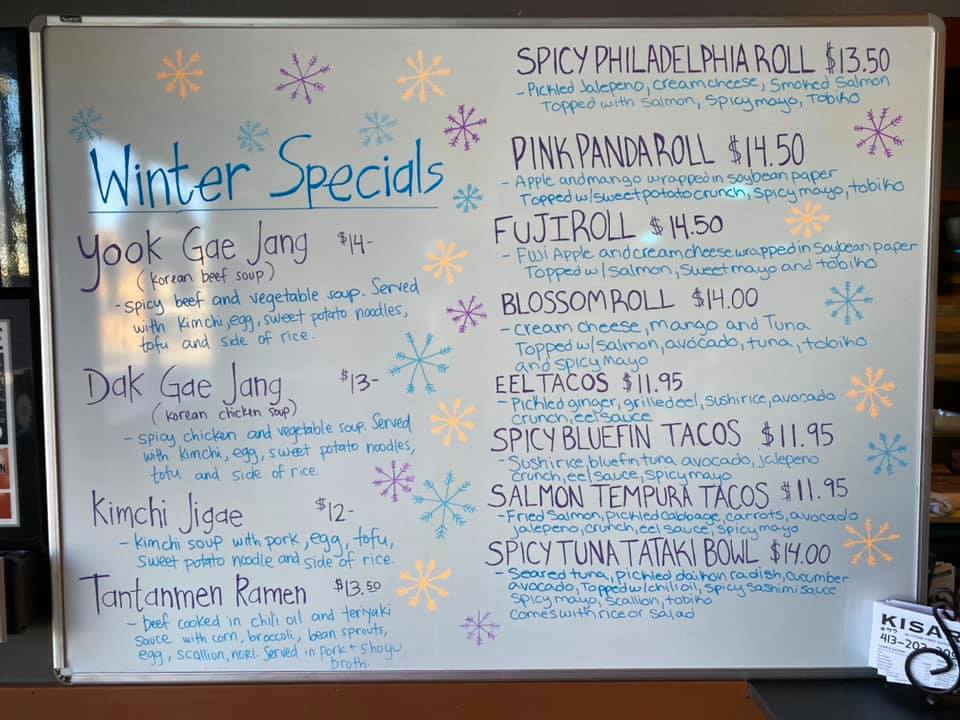 Winter Specials
Yook Gae Jang $14-
(Korean beef soup)
- spicy beef and vegetable soup. Served
with Kimchi, egg, sweet potato noodles,
tofu and side of rice.
Dak Gae Jang $13-
(Korean chicken soup)
- spicy chicken and vegetable soup. Served
with Kimchi, egg, sweet potato noodles,
tofu and side of rice.
Kimchi Jigae $12-
- kimchi soup with pork, egg, tofu,
sweet potato noodle and side of rice.
Tantanmen Ramen $13.50
- beef cooked in chili oil and teriyaki
sauce with corn, broccoli, bean sprouts,
egg, scallion, nori. Served in pork + shoyu
broth.
SPICY PHILADELPHIA ROLL $13.50
- Pickled Jalepeno, cream cheese, Smoked Salmon
Topped with Salmon, Spicy mayo, Tobiko
PINK PANDA ROLL $14.50
- Apple and mango wrapped in soybean paper
Topped w/ sweet potato crunch, spicy mayo, tobiko
FUJI ROLL $14.50
- Fuji Apple and cream cheese wrapped in Soybean paper
Topped w/ salmon, sweet mayo and tobiko
BLOSSOM ROLL $14.00
- cream cheese, mango and Tuna
Topped w/ salmon, avocado, tuna, tobiko
and spicy mayo
EEL TACOS $11.95
- Pickled ginger, grilled eel, sushi rice, avocado
crunch, eel sauce
SPICY BLUEFIN TACOS $11.95
- Sushi rice, bluefin tuna, avocado, jalepeno
crunch, eel sauce, spicy mayo
SALMON TEMPURA TACOS $11.95
- Fried Salmon, pickled cabbage, carrots, avocado
jalepeno, crunch, eel sauce, spicy mayo
SPICY TUNA TATAKI BOWL $14.00
- Seared tuna, pickled daikon radish, cucumber
avocado, Topped w/ chili oil, spicy sashimi sauce
spicy mayo, scallion, tobiko
comes with rice or salad
KISA
413-203-